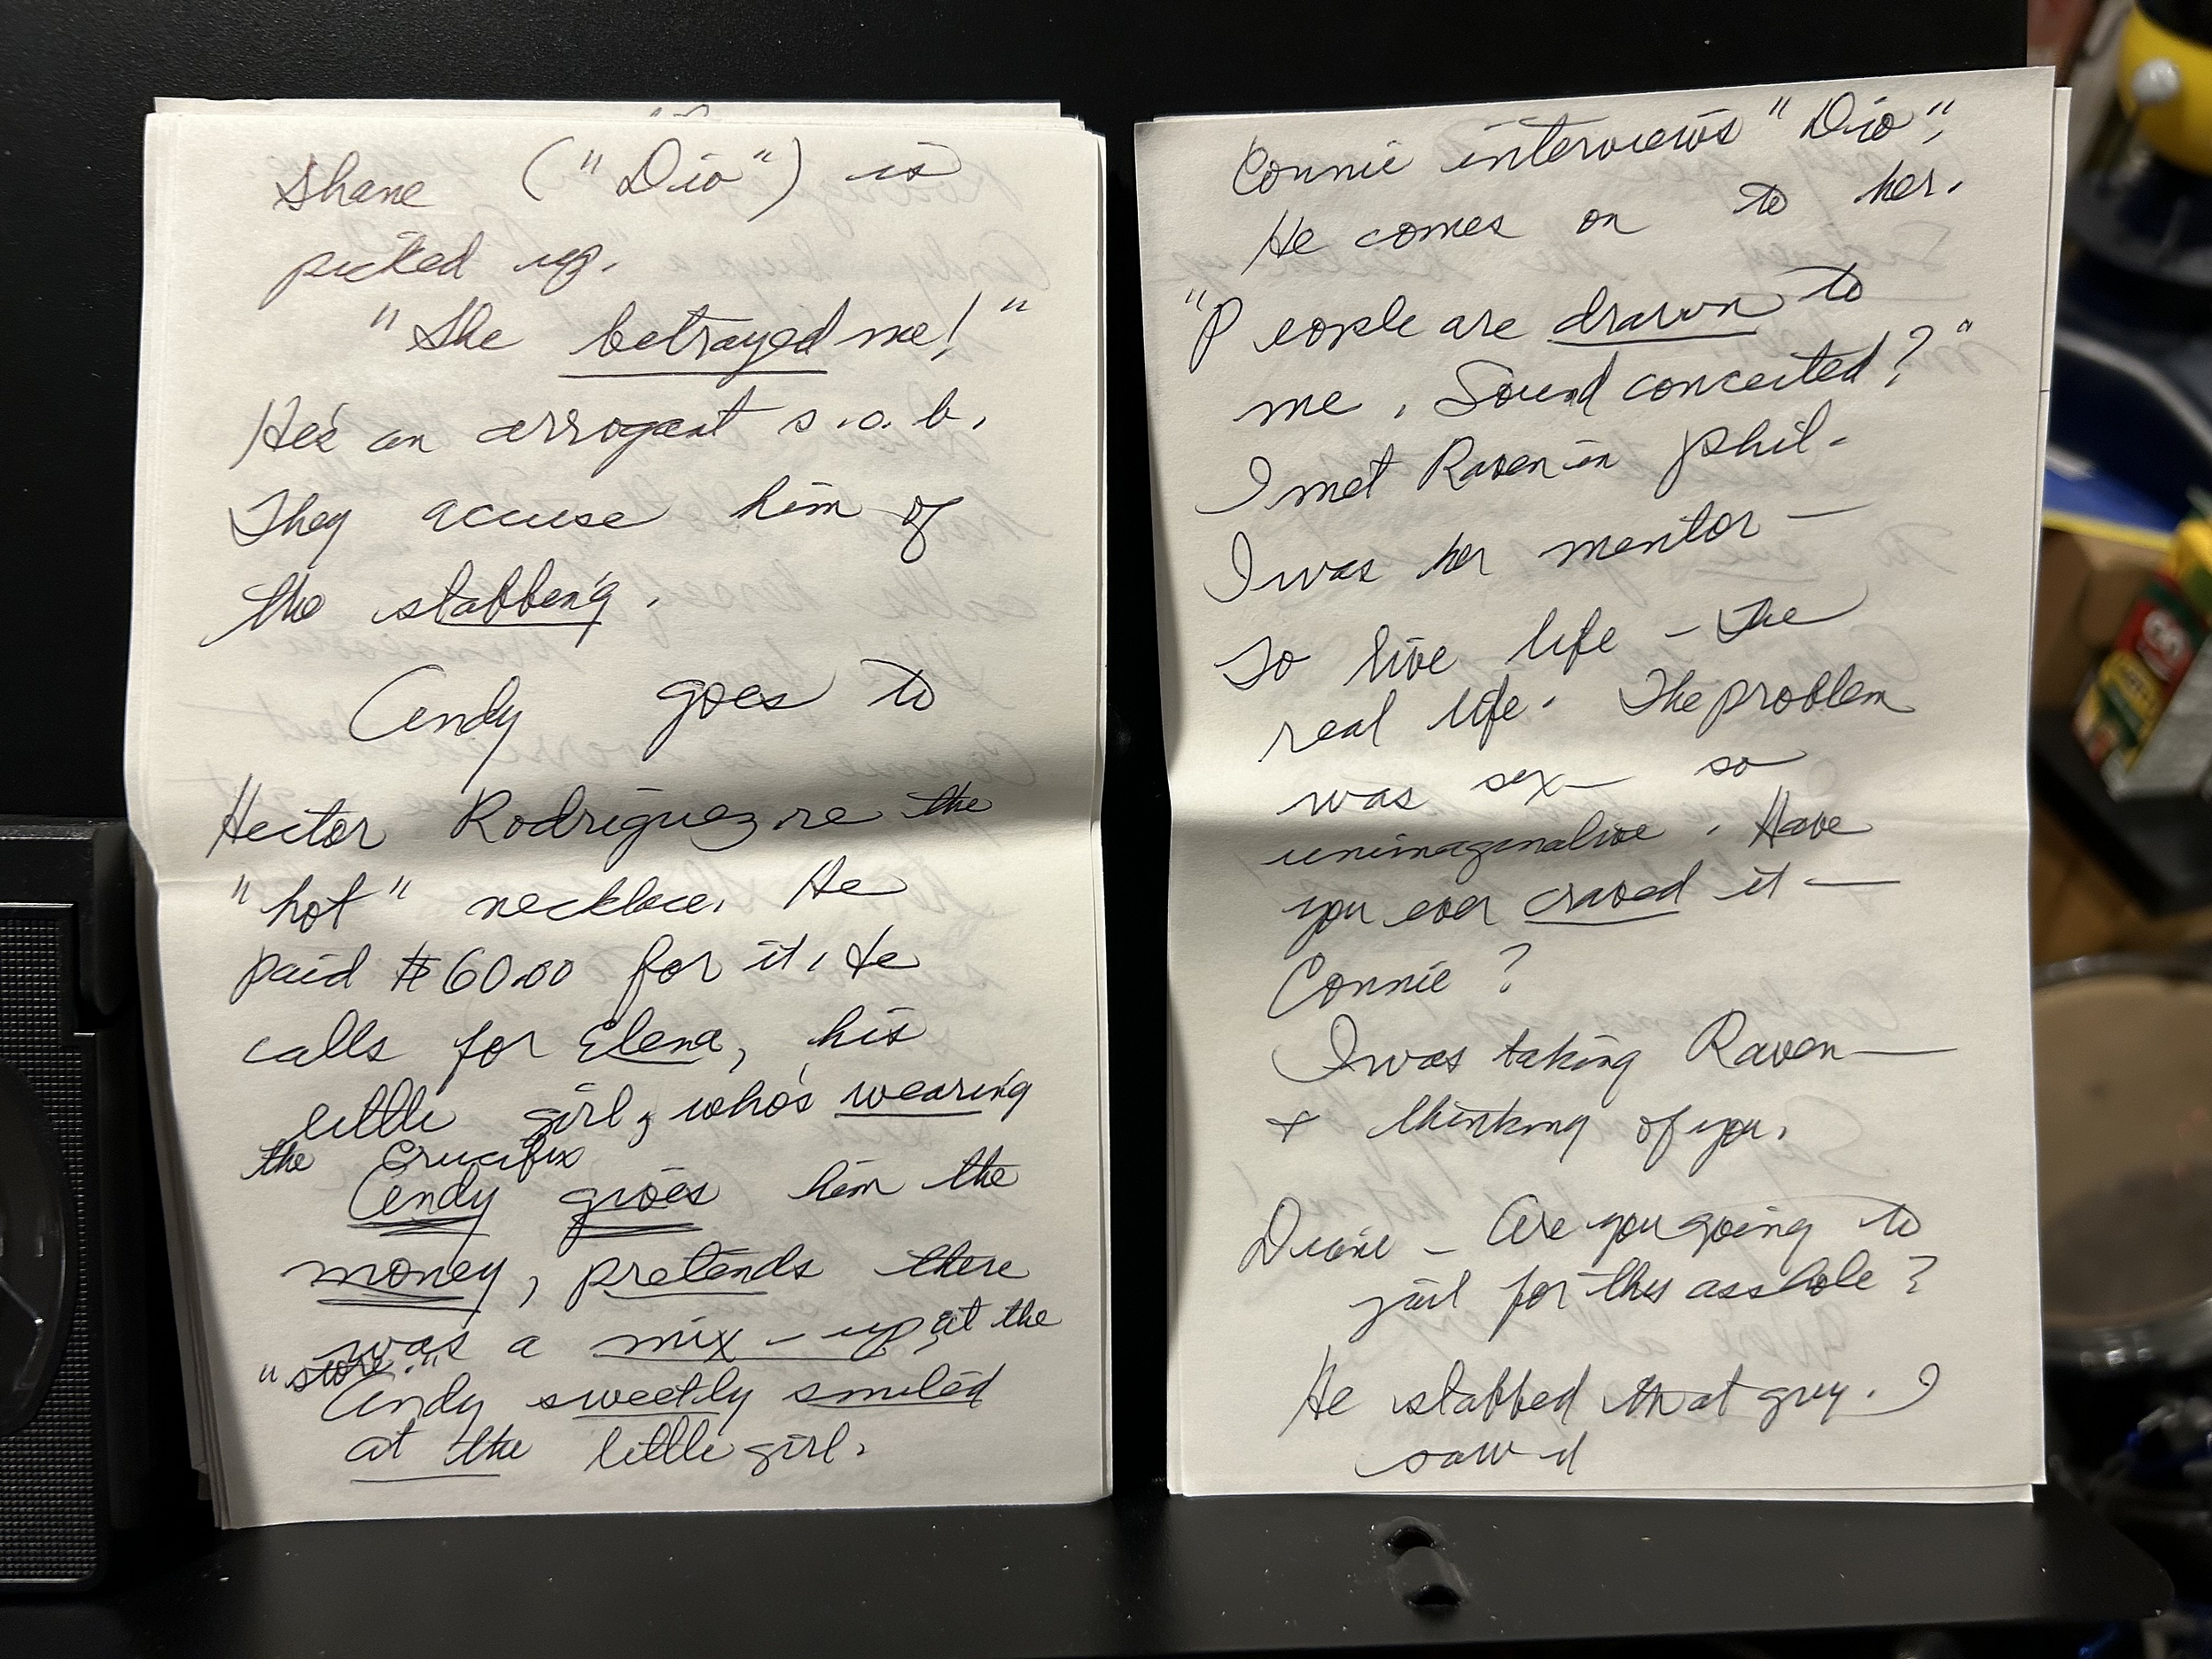 Shane ("Dio") is
picked up.
"She betrayed me!"
He's an arrogant s.o.b.
They accuse him of
the stabbing.
Andy goes to
Hector Rodriguez re the
"hot" necklace. He
paid $60.00 for it. He
calls for Elena, his
little girl, who's wearing
the Crucifix
Andy gives him the
money, pretends there
was a mix-up, at the
"store."
Andy sweetly smiled
at the little girl.
Connie interviews "Dio",
He comes on to her.
"People are drawn to
me. Sound conceited?"
I met Raven in Phil-
I was her mentor —
To live life - the
real life. The problem
was sex — so
unimaginative. Have
you ever craved it —
Connie?
I was taking Raven —
+ thinking of you.
Diane - Are you going to
jail for this asshole?
He stabbed that guy. I
saw it